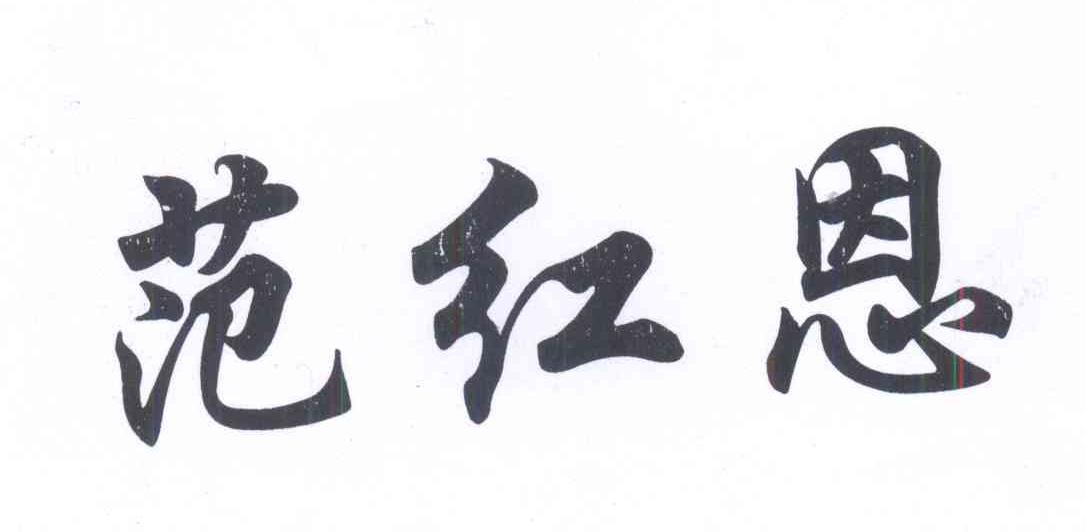 范红恩